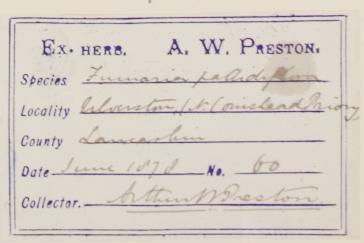 Ex. herb. A. W. Preston.
Species Fumaria pallidiflora
Locality Ulverston, (N. Conishead Priory
County Lancashire
Date June 1878 No. 60
Collector. Arthur W Preston